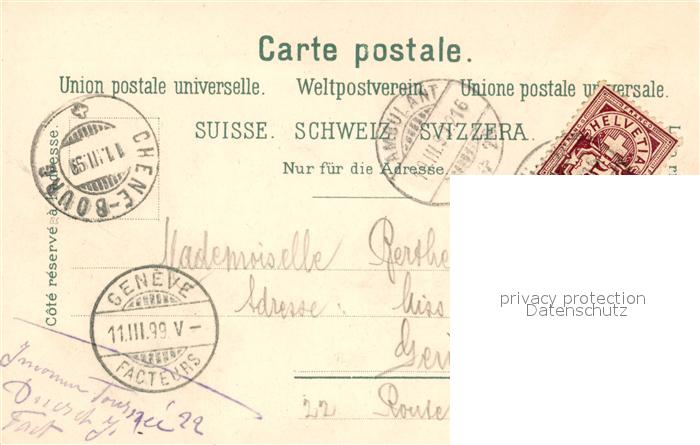 Carte postale.
Union postale universelle. Weltpostverein. Unione postale universale.
SUISSE. SCHWEIZ. SVIZZERA.
Nur für die Adresse.
Côté réservé à l'adresse.
CHÊNE-BOURG
11.III.99
AMBULANT
HELVETIA
Mademoiselle Berthe
Adresse: Miss
Gen
22 Route
GENÈVE
11.III.99. V –
FACTEURS
22
Fact
privacy protection
Datenschutz